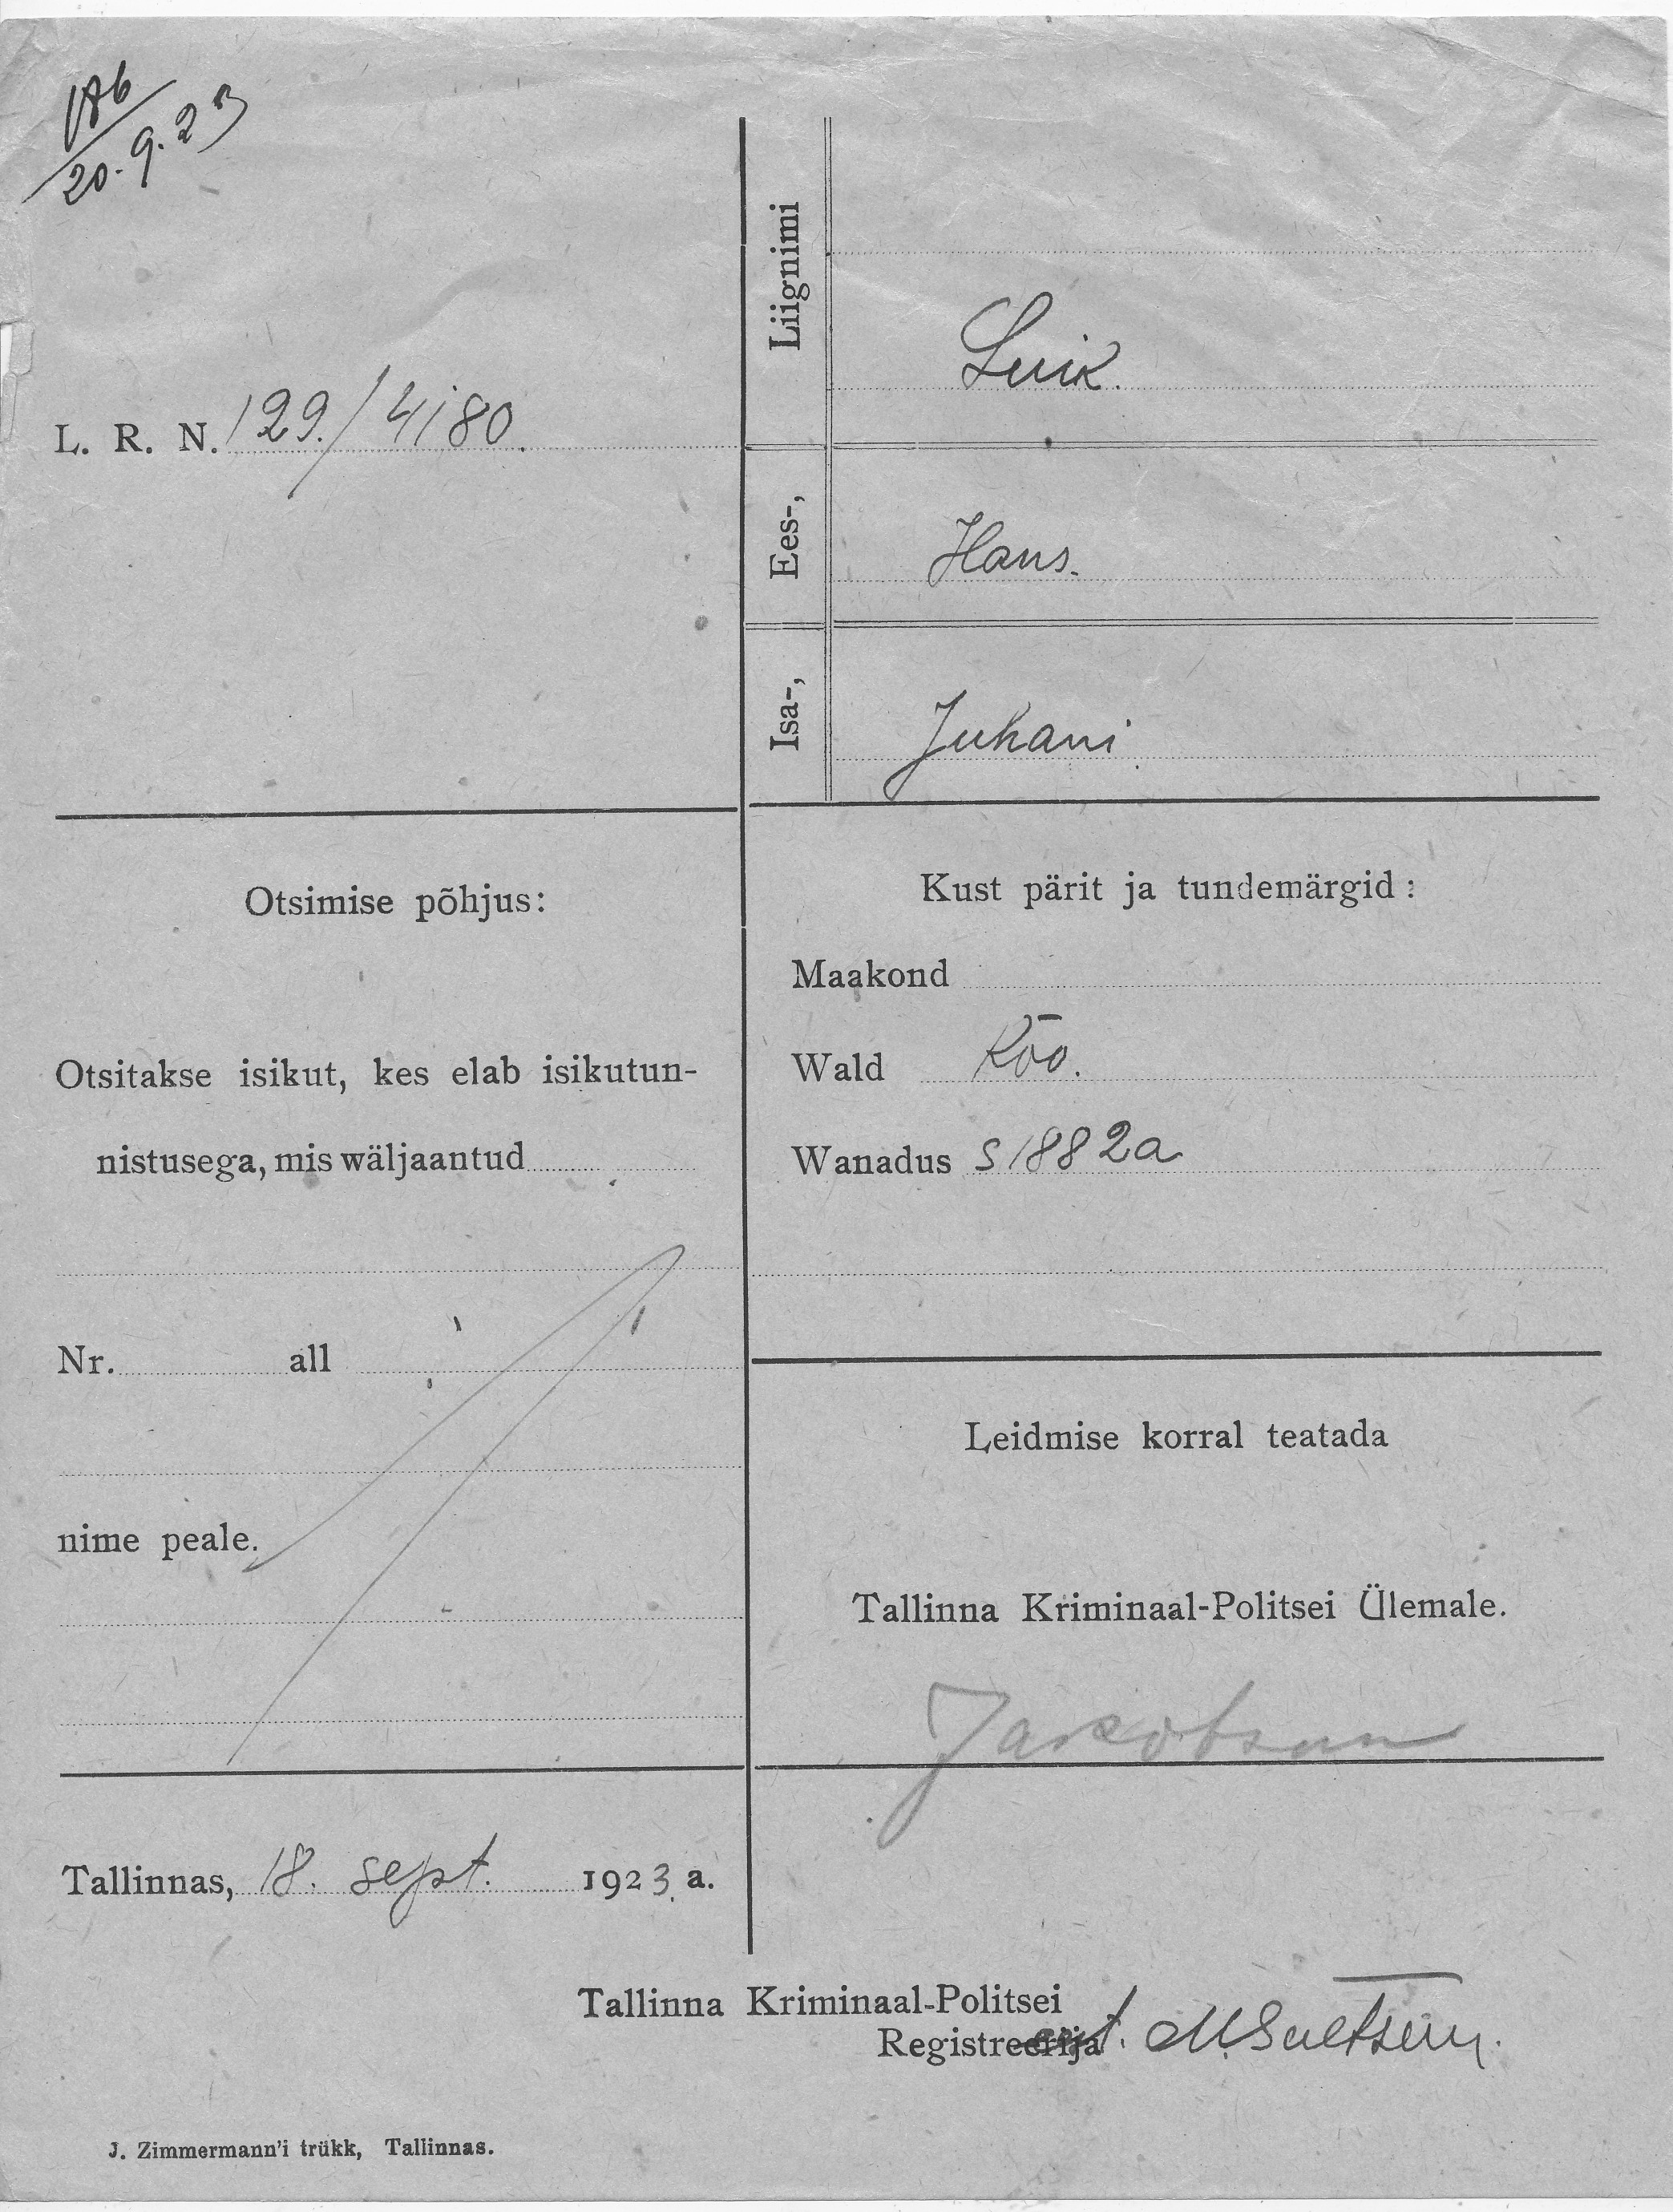 20.9.23
L. R. N. 129./4180.
Liignimi
Luik.
Ees-,
Hans.
Isa-,
Juhani
Otsimise põhjus:
Otsitakse isikut, kes elab isikutun-
nistusega, mis wäljaantud
Nr. all
nime peale.
Tallinnas, 18. sept. 1923 a.
Kust pärit ja tundemärgid:
Maakond
Wald Kõo.
Wanadus S 1882 a
Leidmise korral teatada
Tallinna Kriminaal-Politsei Ülemale.
Jakobson
Tallinna Kriminaal-Politsei
Registreerija
J. Zimmermann'i trükk, Tallinnas.